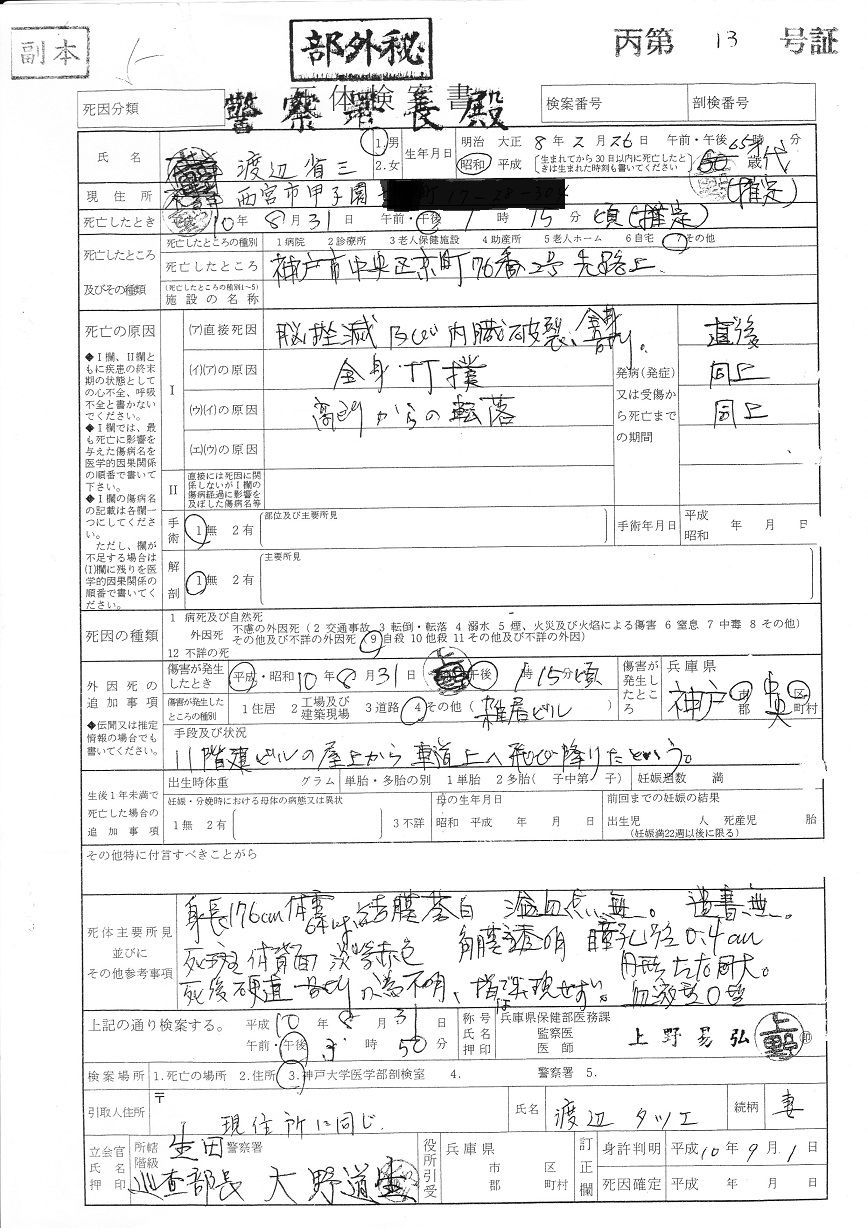 副本
部外秘
丙第 13 号証
死体検案書
警察署長殿
死因分類
検案番号
剖検番号
氏名
渡辺省三
1.男
2.女
生年月日
明治 大正 8年2月26日 午前・午後 時 分
昭和 平成
生まれてから30日以内に死亡したときは生まれた時刻も書いてください
65才
歳代
(推定)
現住所
西宮市甲子園
死亡したとき
10年8月31日 午前・午後 1時15分頃(推定)
死亡したところ及びその種類
死亡したところの種別 1病院 2診療所 3老人保健施設 4助産所 5老人ホーム 6自宅 7その他
死亡したところ
神戸市中央区京町76番2号先路上
(死亡したところの種別1~5)
施設の名称
死亡の原因
◆Ⅰ欄、Ⅱ欄ともに疾患の終末期の状態としての心不全、呼吸不全と書かないでください。
◆Ⅰ欄では、最も死亡に影響を与えた傷病名を医学的因果関係の順番で書いて下さい。
◆Ⅰ欄の傷病名の記載は各欄一つにしてください。
ただし、欄が不足する場合は(Ⅰ)欄に残りを医学的因果関係の順番で書いてください。
Ⅰ
(ア)直接死因
脳挫滅及び内臓破裂、全身
(イ)(ア)の原因
全身打撲
(ウ)(イ)の原因
高所からの転落
(エ)(ウ)の原因
発病(発症)又は受傷から死亡までの期間
直後
同上
同上
Ⅱ
直接には死因に関係しないがⅠ欄の傷病経過に影響を及ぼした傷病名等
手術
1無 2有
部位及び主要所見
手術年月日
平成
昭和
年 月 日
解剖
1無 2有
主要所見
死因の種類
1 病死及び自然死
外因死
不慮の外因死(2 交通事故 3 転倒・転落 4 溺水 5 煙、火災及び火焔による傷害 6 窒息 7 中毒 8 その他)
その他及び不詳の外因死(9自殺 10他殺 11その他及び不詳の外因)
12 不詳の死
外因死の追加事項
◆伝聞又は推定情報の場合でも書いてください。
傷害が発生したとき
平成・昭和10年8月31日 午後 1時15分頃
傷害が発生したところの種別
1住居 2工場及び建築現場 3道路 4その他(雑居ビル)
傷害が発生したところ
兵庫県
神戸 市郡 中央 区町村
手段及び状況
11階建ビルの屋上から車道上へ飛び降りたという。
生後1年未満で死亡した場合の追加事項
出生時体重 グラム
単胎・多胎の別 1単胎 2多胎( 子中第 子)
妊娠週数 満
妊娠・分娩時における母体の病態又は異状
1無 2有 3不詳
母の生年月日
昭和 平成 年 月 日
前回までの妊娠の結果
出生児 人 死産児 胎
(妊娠満22週以後に限る)
その他特に付言すべきことがら
死体主要所見並びにその他参考事項
身長176cm 体重64kg 結膜蒼白 溢血点無。 遺書無。
死斑 体背面 淡紫赤色 角膜透明 瞳孔径0.4cm
円形左右同大。
死後硬直 の為不明、指では出現せず。 血液型O型
上記の通り検案する。
平成10年8月31日
午前・午後 3時50分
称号
氏名
押印
兵庫県保健部医務課
監察医
医師
上野易弘
上野
検案場所 1.死亡の場所 2.住所 3.神戸大学医学部剖検室 4. 警察署 5.
引取人住所
〒
現住所に同じ
氏名
渡辺タツエ
続柄
妻
立会官
氏名
押印
所轄
階級
生田警察署
巡査部長 大野道
役所引受
兵庫県
市 区
郡 町村
訂正欄
身許判明 平成10年9月1日
死因確定 平成 年 月 日